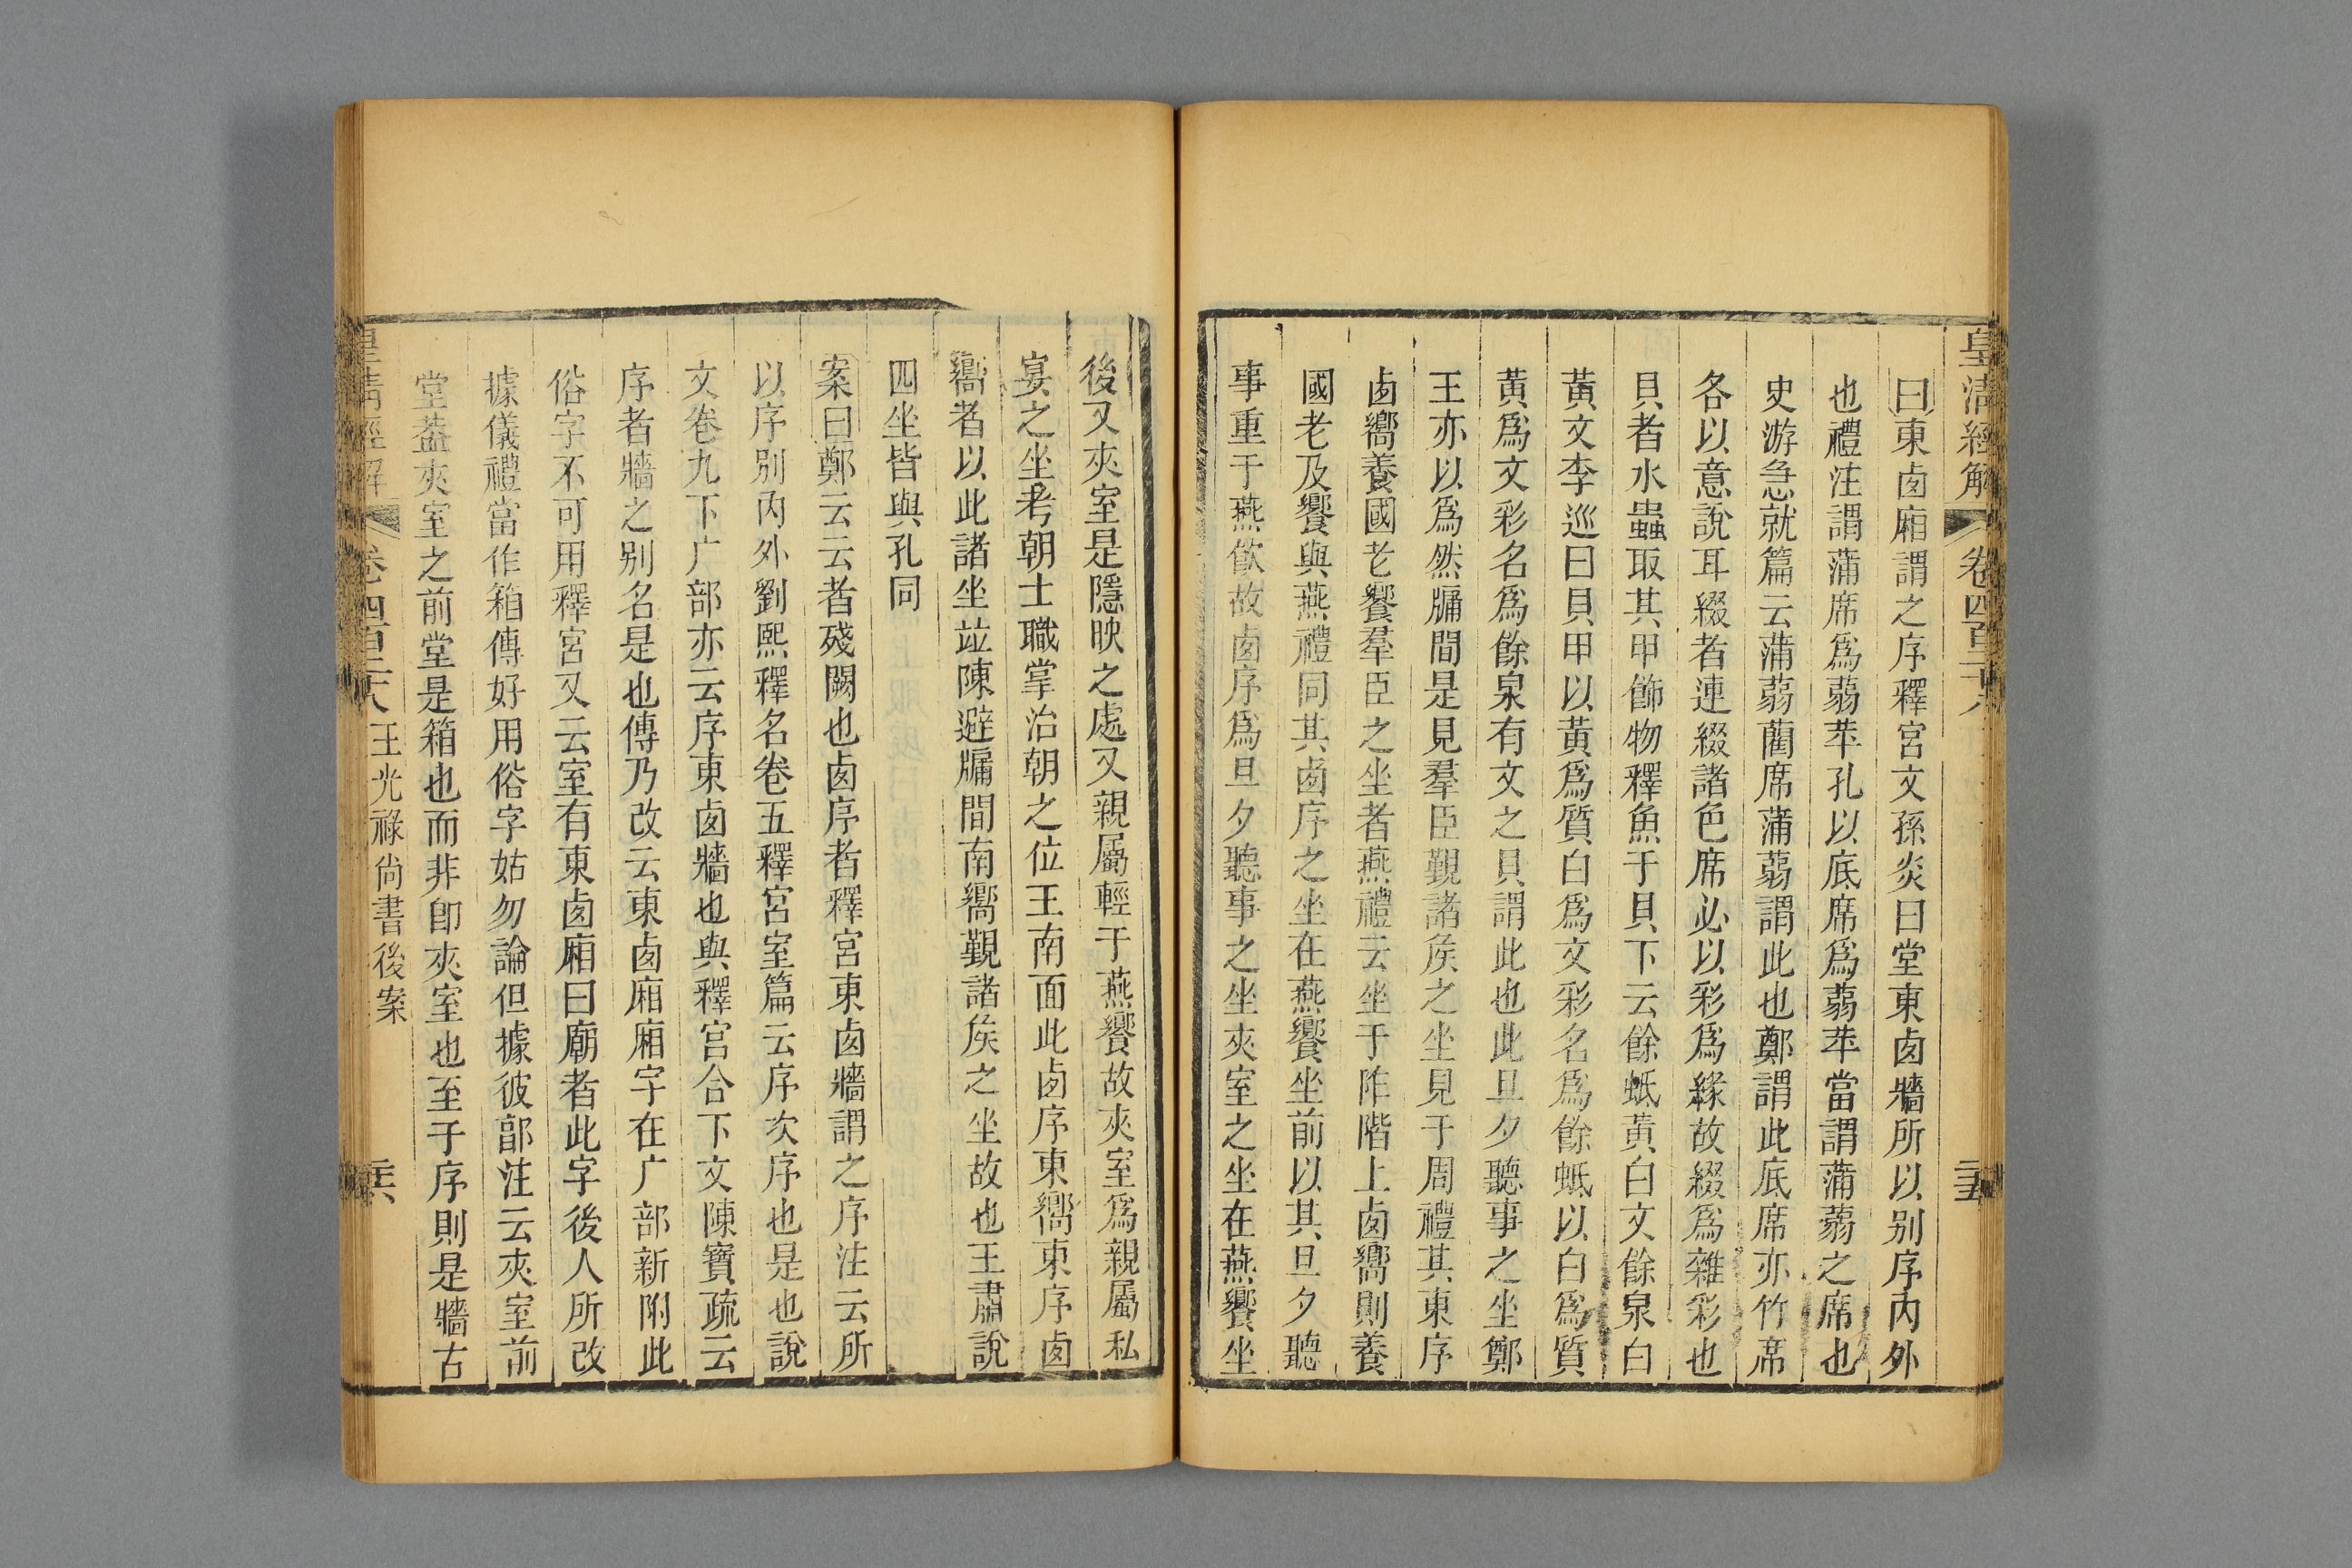 皇清經解 卷四百二十八 二十五
曰東卤廂謂之序釋宮文孫炎曰堂東卤牆所以别序內外
也禮注謂蒲席爲蒻苹孔以底席爲蒻苹當謂蒲蒻之席也
史游急就篇云蒲蒻藺席蒲蒻謂此也鄭謂此底席亦竹席
各以意說耳綴者連綴諸色席必以彩爲緣故綴爲雜彩也
貝者水蟲取其甲飾物釋魚于貝下云餘蚳黃白文餘泉白
黃文李巡曰貝甲以黃爲質白爲文彩名爲餘蚳以白爲質
黃爲文彩名爲餘泉有文之貝謂此也此旦夕聽事之坐鄭
王亦以爲然牖間是見羣臣覲諸矦之坐見于周禮其東序
卤嚮養國老饗羣臣之坐者燕禮云坐于阼階上卤嚮則養
國老及饗與燕禮同其卤序之坐在燕饗坐前以其旦夕聽
事重于燕飲故卤序爲旦夕聽事之坐夾室之坐在燕饗坐
後又夾室是隱映之處又親屬輕于燕饗故夾室爲親屬私
宴之坐考朝士職掌治朝之位王南面此卤序東嚮東序卤
嚮者以此諸坐竝陳避牖間南嚮覲諸矦之坐故也王肅說
四坐皆與孔同
案曰鄭云云者殘闕也卤序者釋宮東卤牆謂之序注云所
以序别內外劉熙釋名卷五釋宮室篇云序次序也是也說
文卷九下广部亦云序東卤牆也與釋宮合下文陳寶疏云
序者牆之别名是也傳乃改云東卤廂廂字在广部新附此
俗字不可用釋宮又云室有東卤廂曰廟者此字後人所改
據儀禮當作箱傳好用俗字姑勿論但據彼郭注云夾室前
堂葢夾室之前堂是箱也而非卽夾室也至于序則是牆古
皇清經解 卷四百二十八 王光祿尙書後案 二十六